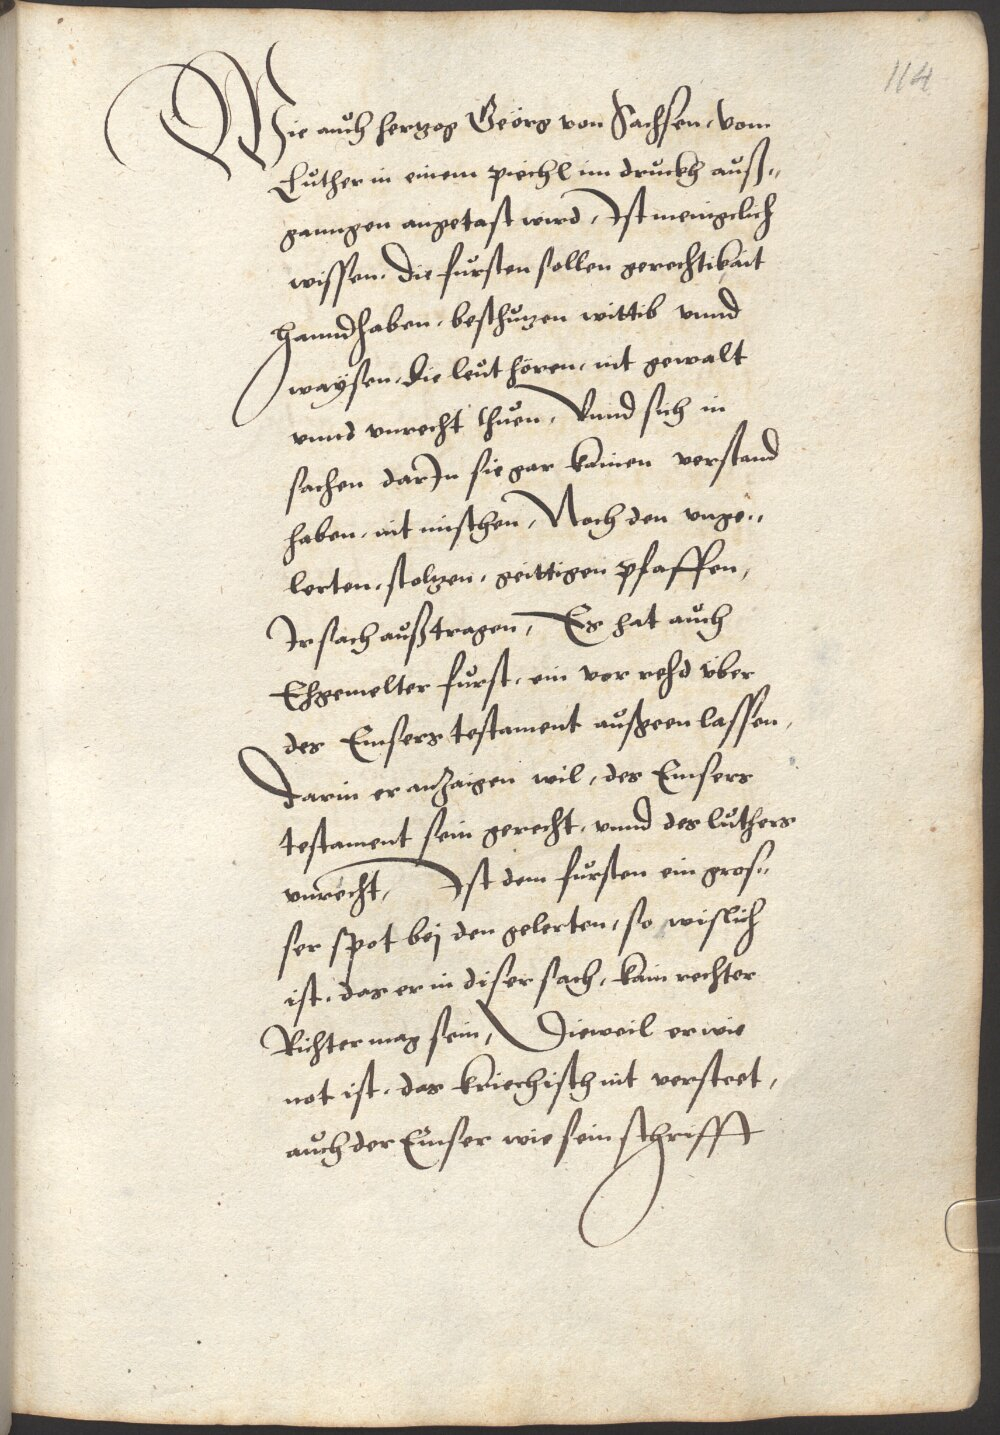 114
Wie auch hertzog Georg von Sachsen, vom
Luther in einem piechl im druckh auß„
ganngen angetast wird, Ist menigclich
wissen. Die fursten sollen gerechtikait
hanndhaben, beschutzen wittib vnnd
waysen, die leut hören, nit gewalt
vnnd vnrecht thuen, Vnnd sich in
sachen darJn sie gar kainen verstand
haben, nit mischen, Noch den vnge„
lerten, stoltzen, geittigen pfaffen,
Ir sach außtragen, Es hat auch
Ehgemelter furst, ein vor rehd vber
des Emsers testament außgeen lassen,
darin er anzaigen wil, des Emsers
testament sein gerecht, vnnd des luthers
vnrecht, Ist dem fursten ein gros„
ser spot bej den gelerten, so wislich
ist, das er in diser sach, kain rechter
Richter mag sein, Dieweil er wie
not ist, das kriechisch nit versteet,
auch der Emser wie sein schrifft